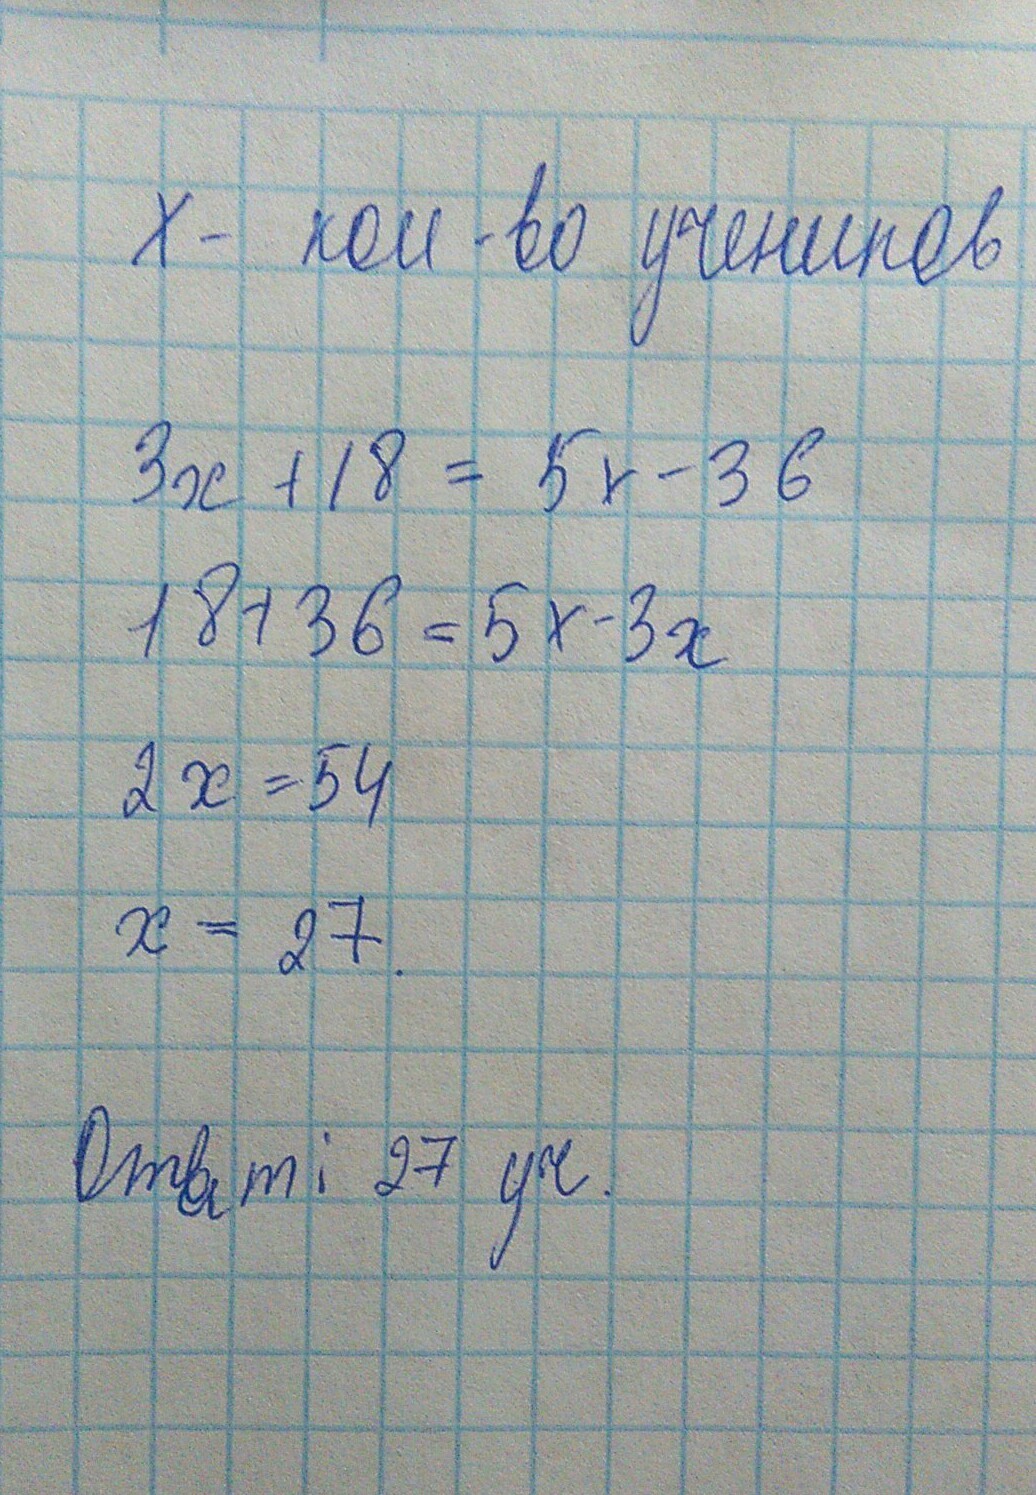 X - кол-во учеников
3x + 18 = 5x - 36
18 + 36 = 5x - 3x
2x = 54
x = 27.
Ответ: 27 уч.